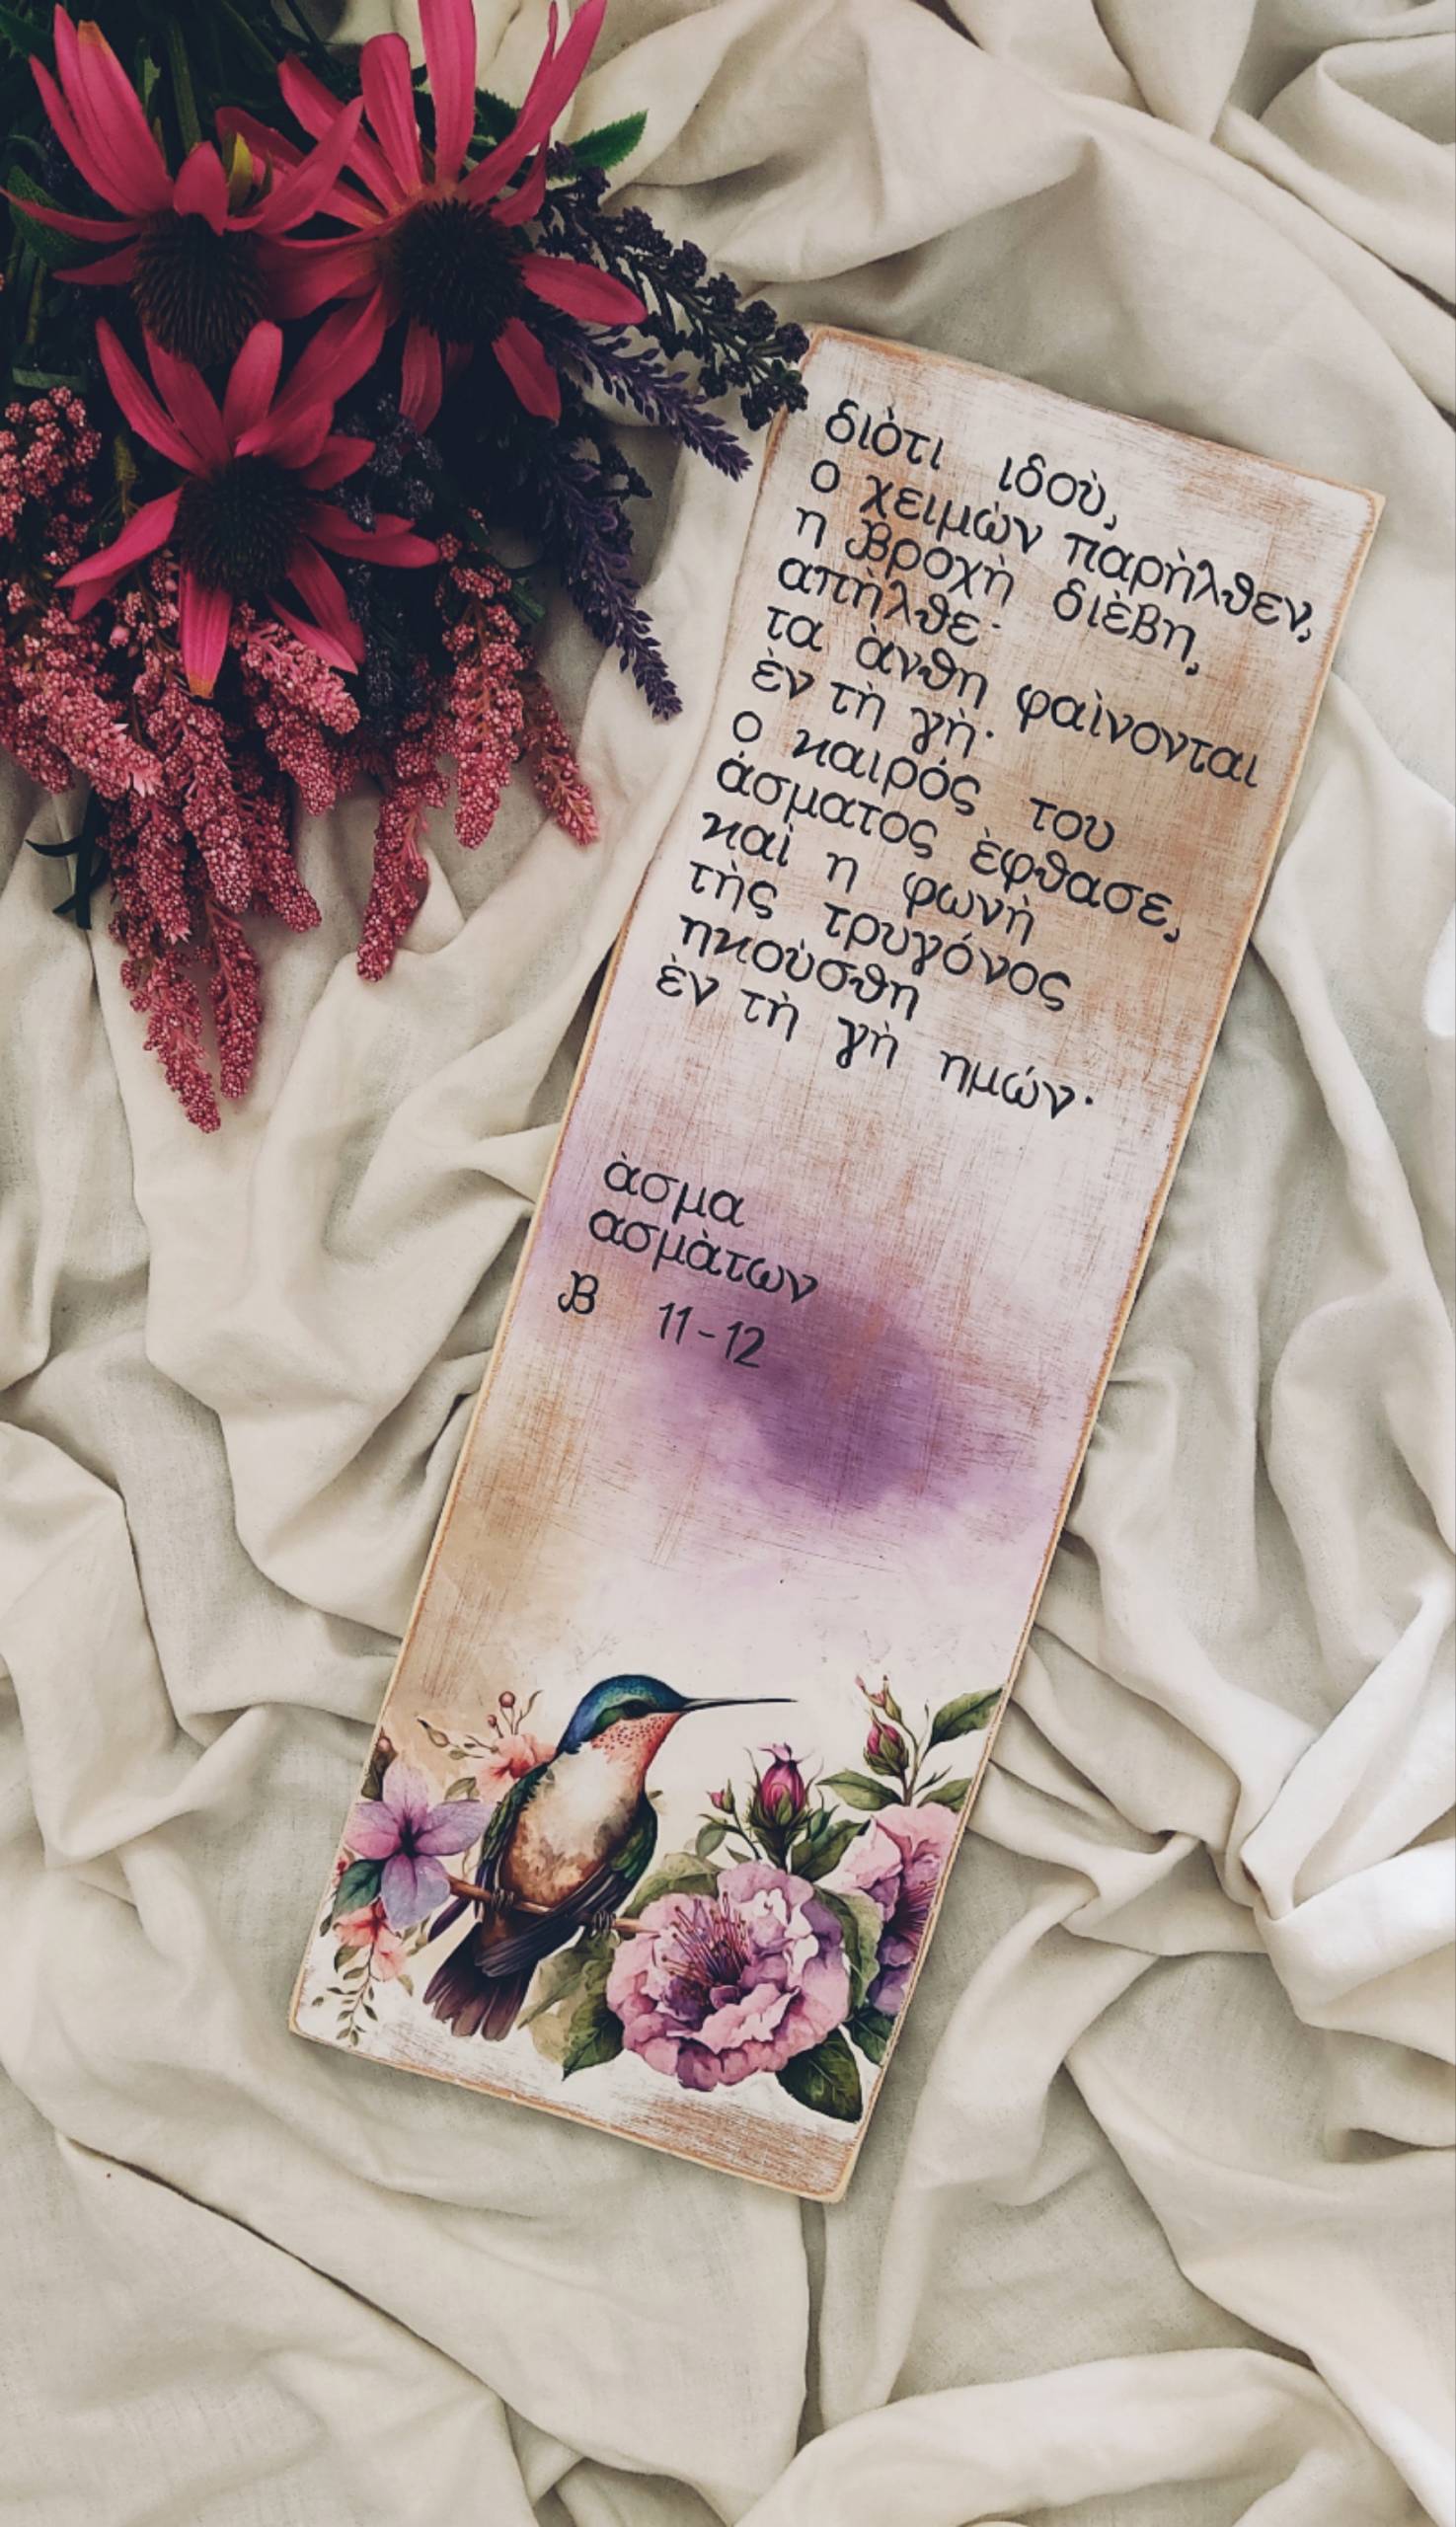 διὸτι ιδοὺ,
ο χειμὼν παρὴλθεν,
η βροχὴ διὲβη,
απὴλθε·
τα ὰνθη φαὶνονται
ὲν τὴ γὴ·
ο καιρός του
άσματος ὲφθασε,
καὶ η φωνὴ
τὴς τρυγόνος
ηκοὺσθη
ὲν τὴ γὴ ημών·
ὰσμα
ασμὰτων
Β 11-12